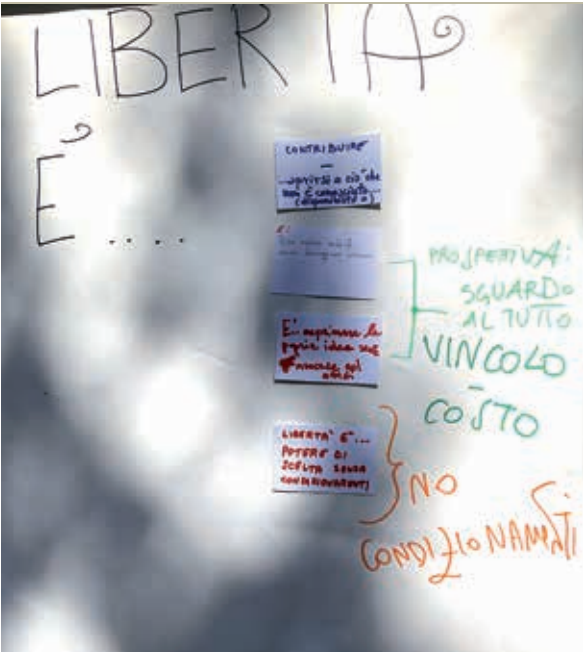 LIBERTÀ
È ....
CONTRIBUIRE
–
...aprirsi a ciò che
non è conosciuto...
(disponibilità a)
È:
È esprimere le
proprie idee senza
nuocere agli
altri
LIBERTÀ È...
POTERE DI
SCELTA SENZA
CONDIZIONAMENTI
PROSPETTIVA:
SGUARDO
AL TUTTO
VINCOLO
–
COSTO
NO
CONDIZIONAMENTI